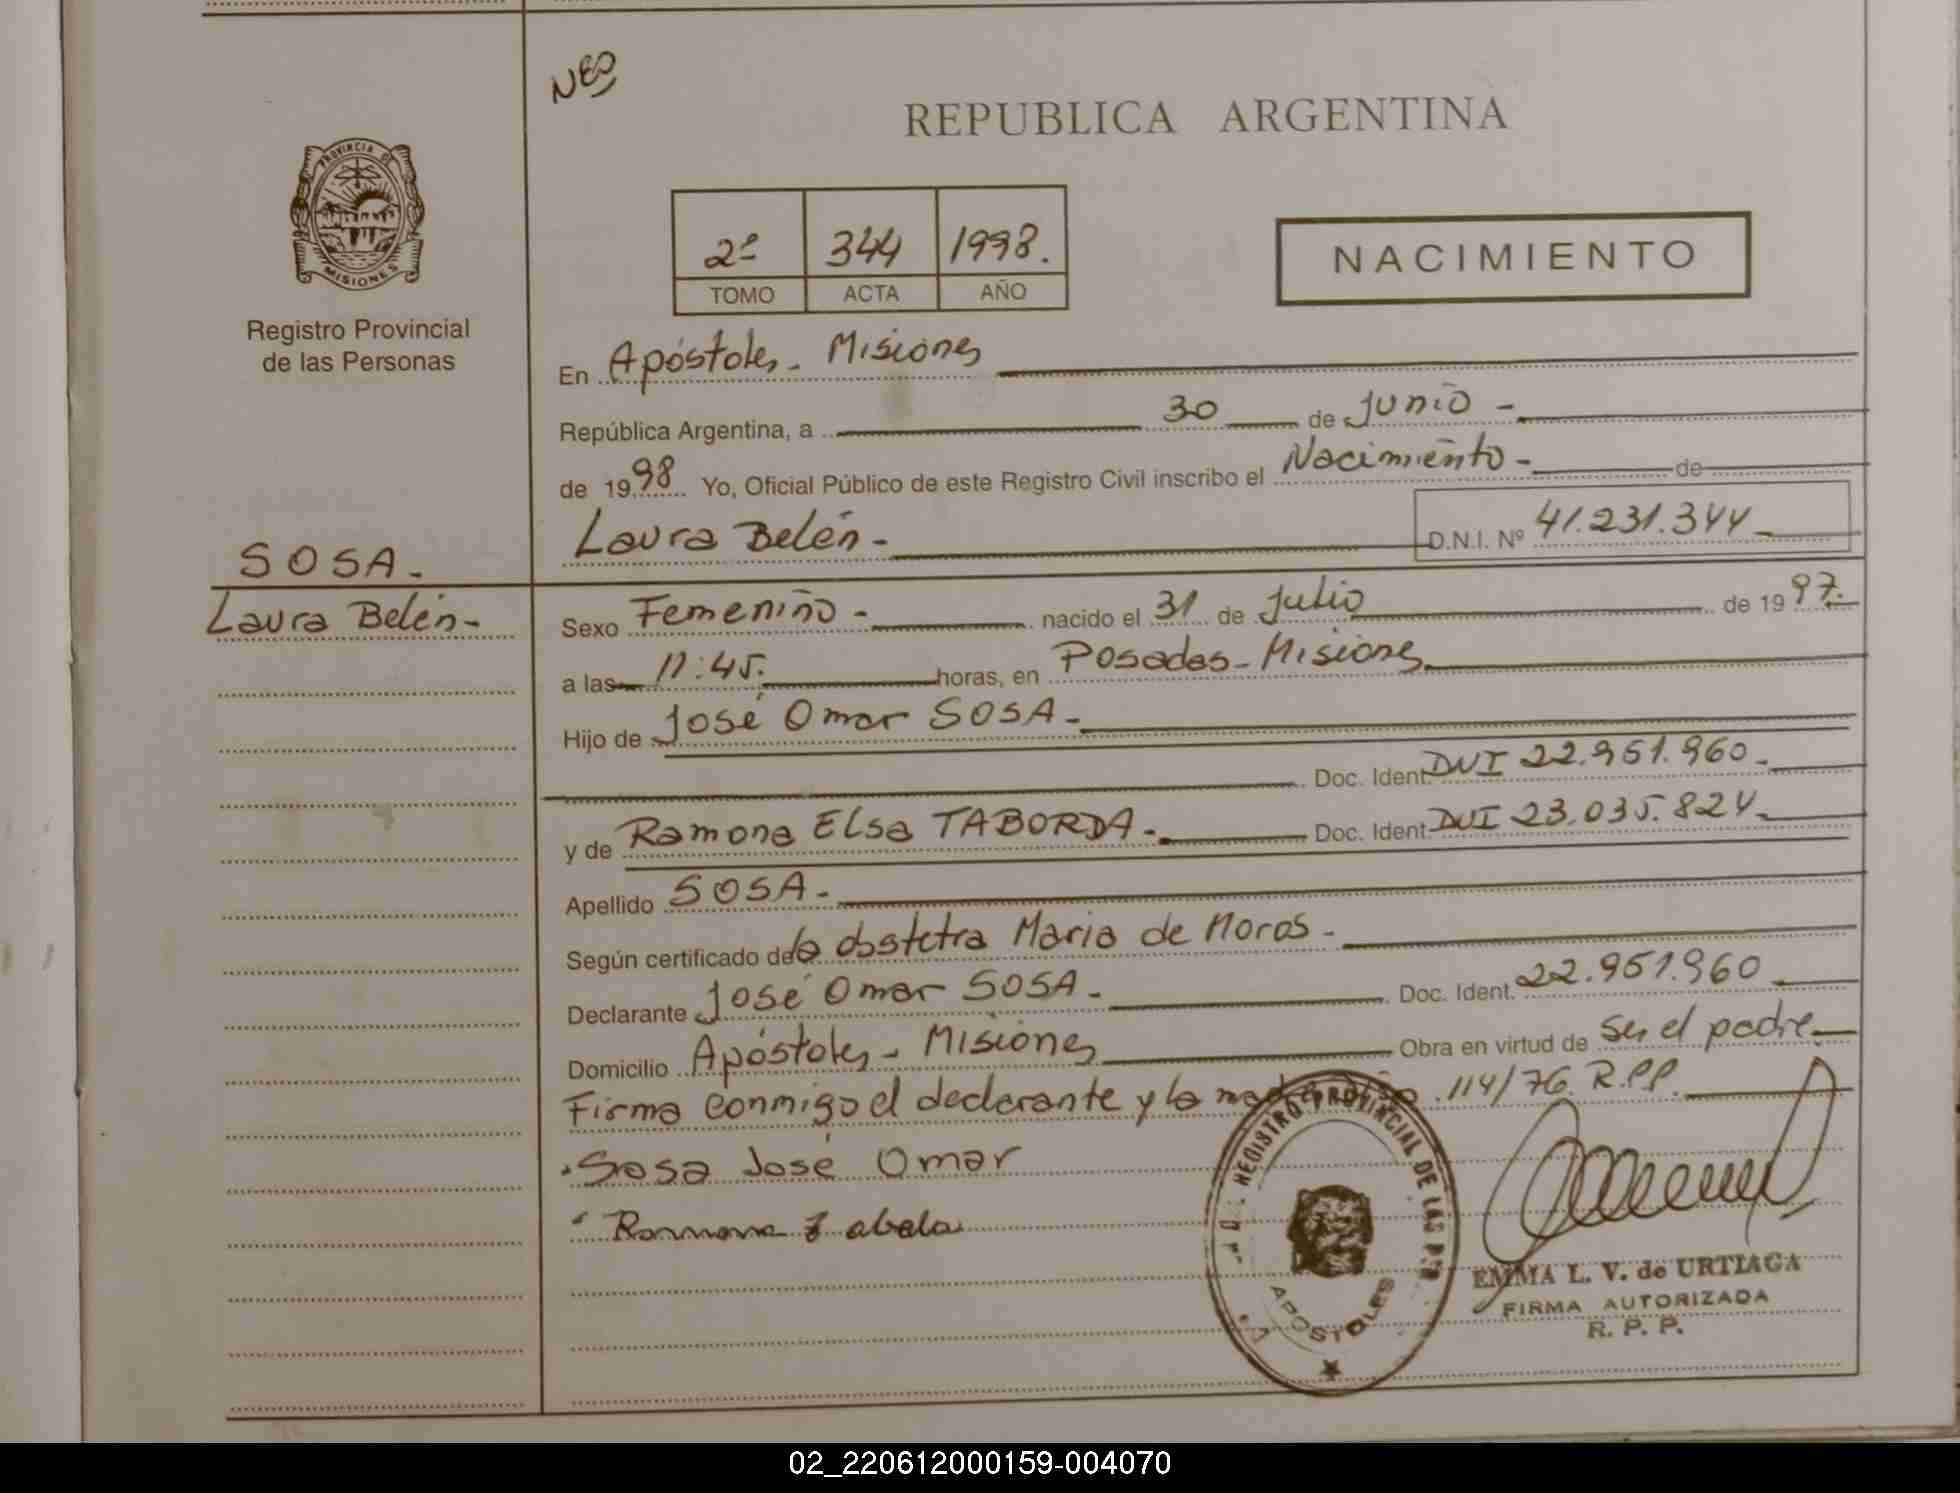 NEO
REPUBLICA ARGENTINA
PROVINCIA DE
MISIONES
Registro Provincial
de las Personas
2º 344 1998.
TOMO ACTA AÑO
NACIMIENTO
En Apóstoles - Misiones
República Argentina, a 30 de Junio -
de 1998 Yo, Oficial Público de este Registro Civil inscribo el Nacimiento - de
Laura Belén - D.N.I. Nº 41.231.344
SOSA.
Laura Belén -
Sexo Femenino - nacido el 31 de Julio de 1997.
a las 11:45. horas, en Posadas - Misiones
Hijo de José Omar SOSA -
Doc. Ident. DNI 22.951.960 -
y de Ramona Elsa TABORDA - Doc. Ident. DNI 23.035.824
Apellido SOSA -
Según certificado de la obstetra Maria de Moros -
Declarante José Omar SOSA - Doc. Ident. 22.951.960
Domicilio Apóstoles - Misiones Obra en virtud de ser el padre
Firma conmigo el declarante y la madre 114/76 R.P.P.
Sosa José Omar
Ramona
REGISTRO PROVINCIAL DE LAS
APOSTOLES
EMMA L. V. de URTIAGA
FIRMA AUTORIZADA
R. P. P.
02_220612000159-004070